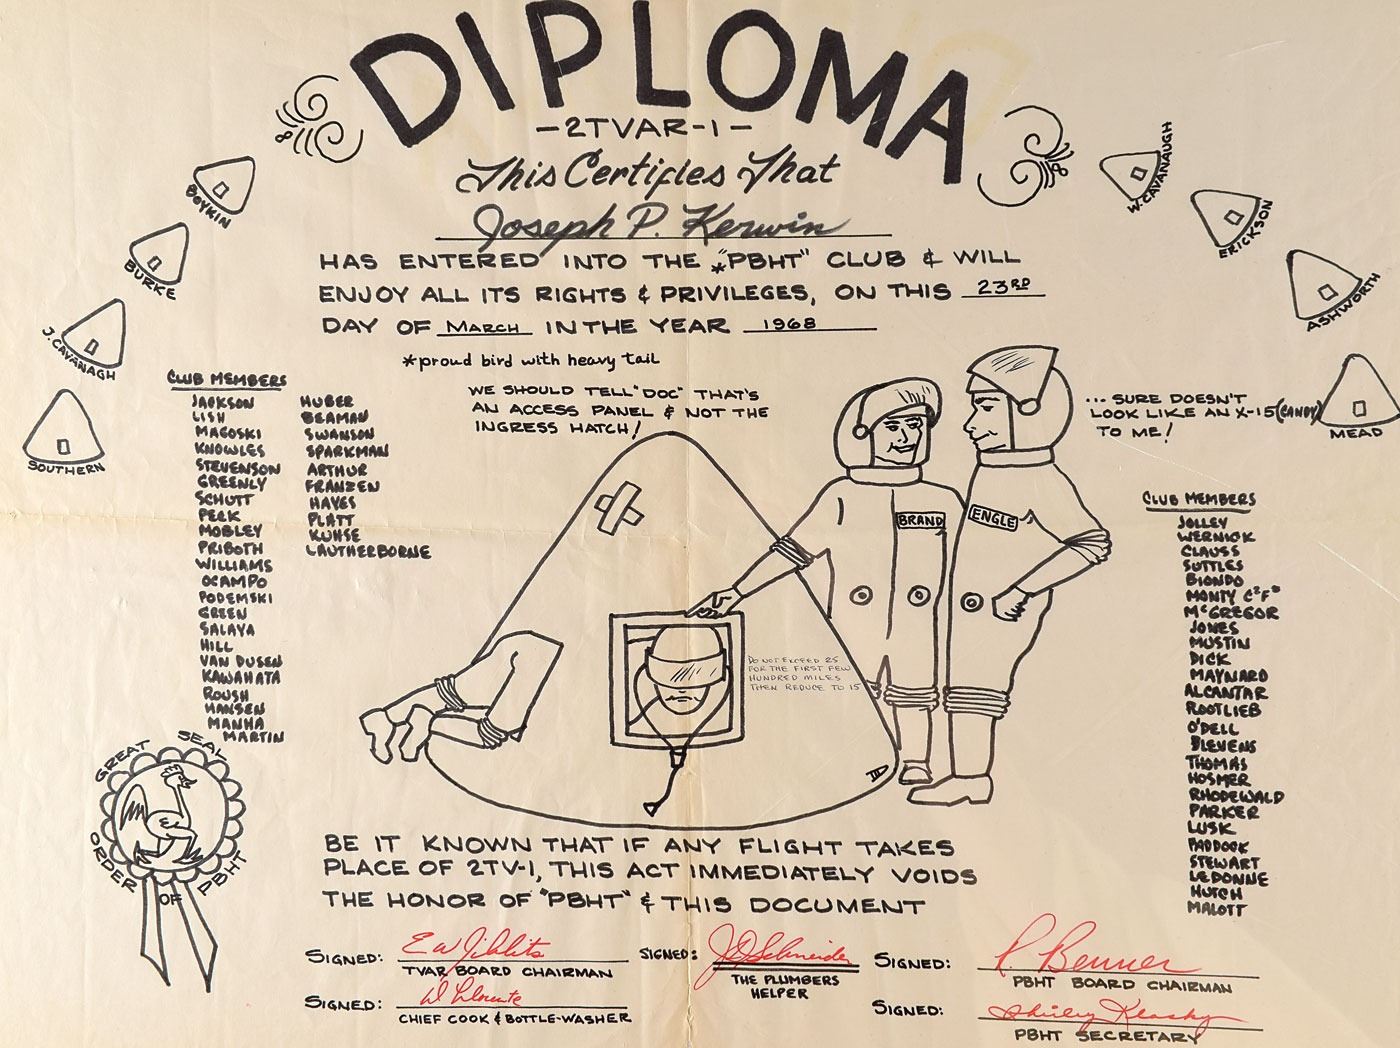 DIPLOMA
-2TVAR-1-
This Certifies That
Joseph P. Kerwin
HAS ENTERED INTO THE *"PBHT" CLUB & WILL
ENJOY ALL ITS RIGHTS & PRIVILEGES, ON THIS 23RD
DAY OF MARCH IN THE YEAR 1968
*proud bird with heavy tail
BOYKIN
BURKE
J. CAVANAGH
SOUTHERN
W. CAVANAUGH
ERICKSON
ASHWORTH
MEAD
CLUB MEMBERS
JACKSON
LISH
MAGOSKI
KNOWLES
STEVENSON
GREENLY
SCHUTT
PECK
MOBLEY
PRIBOTH
WILLIAMS
OCAMPO
PODEMSKI
GREEN
SALAYA
HILL
VAN DUSEN
KAWAHATA
ROUSH
HANSEN
MANHA
MARTIN
HUBER
BEAMAN
SWANSON
SPARKMAN
ARTHUR
FRANZEN
HAYES
PLATT
KUHSE
LAUTHERBORNE
WE SHOULD TELL "DOC" THAT'S
AN ACCESS PANEL & NOT THE
INGRESS HATCH!
... SURE DOESN'T
LOOK LIKE AN X-15 (CANDY)
TO ME!
BRAND
ENGLE
DO NOT EXCEED 25
FOR THE FIRST FEW
HUNDRED MILES
THEN REDUCE TO 15
CLUB MEMBERS
JOLLEY
WERNICK
CLAUSS
SUTTLES
BIONDO
MONTY C²F²
McGREGOR
JONES
MUSTIN
DICK
MAYNARD
ALCANTAR
ROOTLIEB
O'DELL
BLEVENS
THOMAS
HOSMER
RHODEWALD
PARKER
LUSK
PADDOCK
STEWART
LEDONNE
HUTCH
MALOTT
GREAT SEAL
ORDER OF PBHT
BE IT KNOWN THAT IF ANY FLIGHT TAKES
PLACE OF 2TV-1, THIS ACT IMMEDIATELY VOIDS
THE HONOR OF "PBHT" & THIS DOCUMENT
SIGNED:
TVAR BOARD CHAIRMAN
SIGNED:
CHIEF COOK & BOTTLE-WASHER
SIGNED: J Schneider
THE PLUMBERS
HELPER
SIGNED: P. Benner
PBHT BOARD CHAIRMAN
SIGNED: Shirley
PBHT SECRETARY